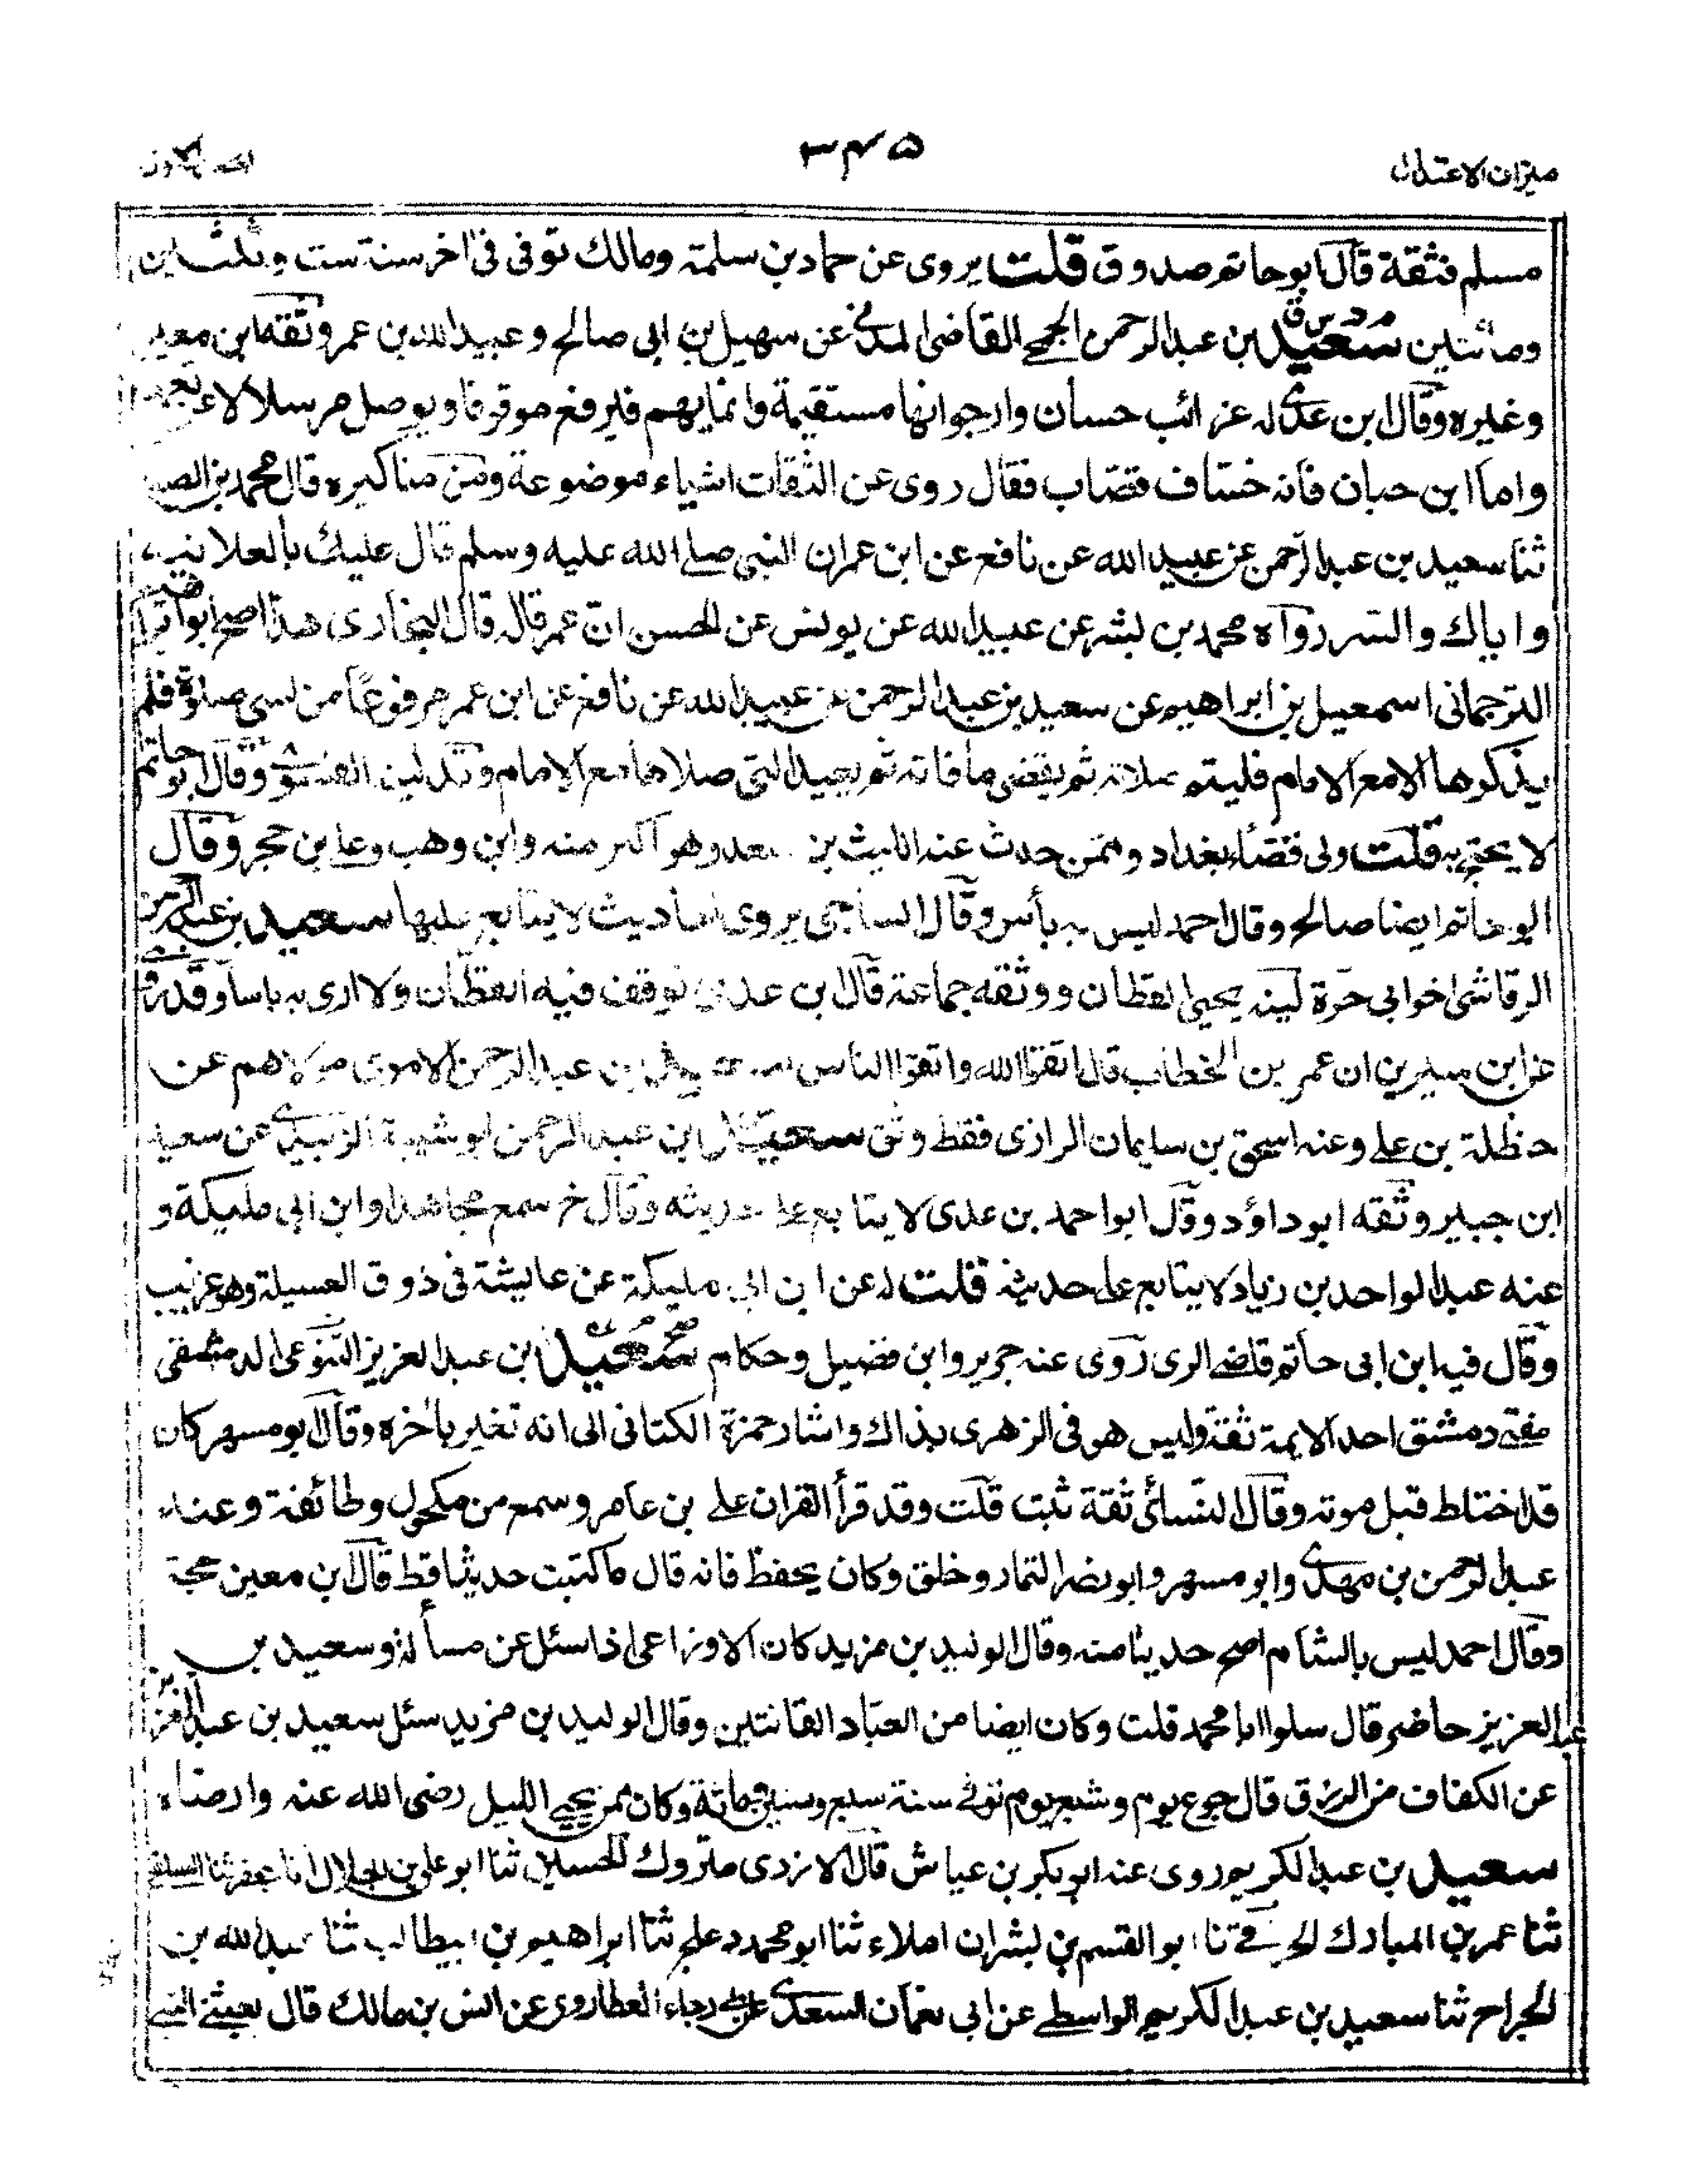 ميزان الاعتدال
٣٤٥
مسلم فثقة قال ابو حاتم صدوق قلت يروى عن حماد بن سلمة ومالك توفى فى اخر سنة ست وثلثين
ومائتين سعيد بن عبد الرحمن الجمحى القاضى المدنى عن سهيل بن ابى صالح وعبيد الله بن عمر وثقه ابن معين
وغيره وقال ابن عدى له غرائب حسان وارجوانها مستقيمة وانما يهم فيرفع موقوفا ويوصل مرسلا لا عن تعمد
واما ابن حبان فانه خساف قصاب فقال روى عن الثقات اشياء موضوعة ومن مناكيره قال محمد بن الصباح
ثنا سعيد بن عبد الرحمن عن عبيد الله عن نافع عن ابن عمران النبى صلے الله عليه وسلم قال عليك بالعلانية
واياك والسر رواه محمد بن بشر عن عبيد الله عن يونس عن الحسن ان عمر قاله قال البخارى هذا اصح ابو ابراهيم
الترجمانى اسمعيل بن ابراهيم عن سعيد بن عبد الرحمن عن عبيد الله عن نافع عن ابن عمر مرفوعا من نسى صلوة فلم
يذكرها الا مع الامام فليتم صلاته ثم يقضى ما فاته ثم يعيد التى صلاها مع الامام وقد لين الفسوى وقال ابو حاتم
لا يحتج به قلت ولى قضاء بغداد وممن حدث عنه الليث بن سعد وهو اكبر منه وابن وهب وعلى بن حجر وقال
ابو حاتم ايضا صالح وقال احمد ليس به بأس وقال الساجى يروى احاديث لا يتابع عليها سعيد بن عبد الرحمن
الرقاشى اخو ابى حرة لينه يحيى القطان ووثقه جماعة قال ابن عدى توقف فيه القطان ولا ارى به باسا وقد روى
عن ابن سيرين ان عمر بن الخطاب قال اتقوا الله واتقوا الناس سعيد بن عبد الرحمن الاموى مولاهم عن
حنظلة بن على وعنه اسحق بن سليمان الرازى فقط وثق سعيد بن عبد الرحمن ابو شيبة الزبيدى عن سعيد
ابن جبير وثقه ابو داؤد وقال ابو احمد بن عدى لا يتابع على حديثه وقال خ سمع مجاهدا وابن ابى مليكة و
عنه عبد الواحد بن زياد لا يتابع على حديثه قلت له عن ابن ابى مليكة عن عايشة فى ذوق العسيلة وهو غريب
وقال فيه ابن ابى حاتم قاضے الرى روى عنه جرير وابن فضيل وحكام سعيد بن عبد العزيز التنوخى الدمشقى
مفتے دمشق احد الايمة ثقة وليس هو فى الزهرى بذاك واشار حمزة الكتانى الى انه تغير بأخره وقال ابو مسهر كان
قد اختلط قبل موته وقال النسائى ثقة ثبت قلت وقد قرأ القران على بن عامر وسمع من مكحول وطائفة وعنه
عبد الرحمن بن مهدى وابو مسهر وابو نصر التمار وخلق وكان يحفظ فانه قال ما كتبت حديثا قط قال ابن معين حجة
وقال احمد ليس بالشام اصح حديثا منه وقال الوليد بن مزيد كان الاوزاعى اذا سئل عن مسألة وسعيد بن
عبد العزيز حاضر قال سلوا ابا محمد قلت وكان ايضا من العباد القانتين وقال الوليد بن مزيد سئل سعيد بن عبد العزيز
عن الكفاف من الرزق قال جوع يوم وشبع يوم توفے سنة سبع وستين ومائة وكان ممن يحيى الليل رضى الله عنه وارضاه
سعيد بن عبد الكريم روى عنه ابو بكر بن عياش قال الازدى متروك الحسين ثنا ابو على بن الجلال انا جعفر ثنا السلفے
ثنا عمر بن المبارك ثنا ابو القسم بن بشران املاء ثنا ابو محمد دعلج ثنا ابراهيم بن ابيطالب ثنا عبد الله بن
الجراح ثنا سعيد بن عبد الكريم الواسطے عن ابى نعمان السعدى عن ابى رجاء العطاردى عن انس بن مالك قال بعثنے النبے